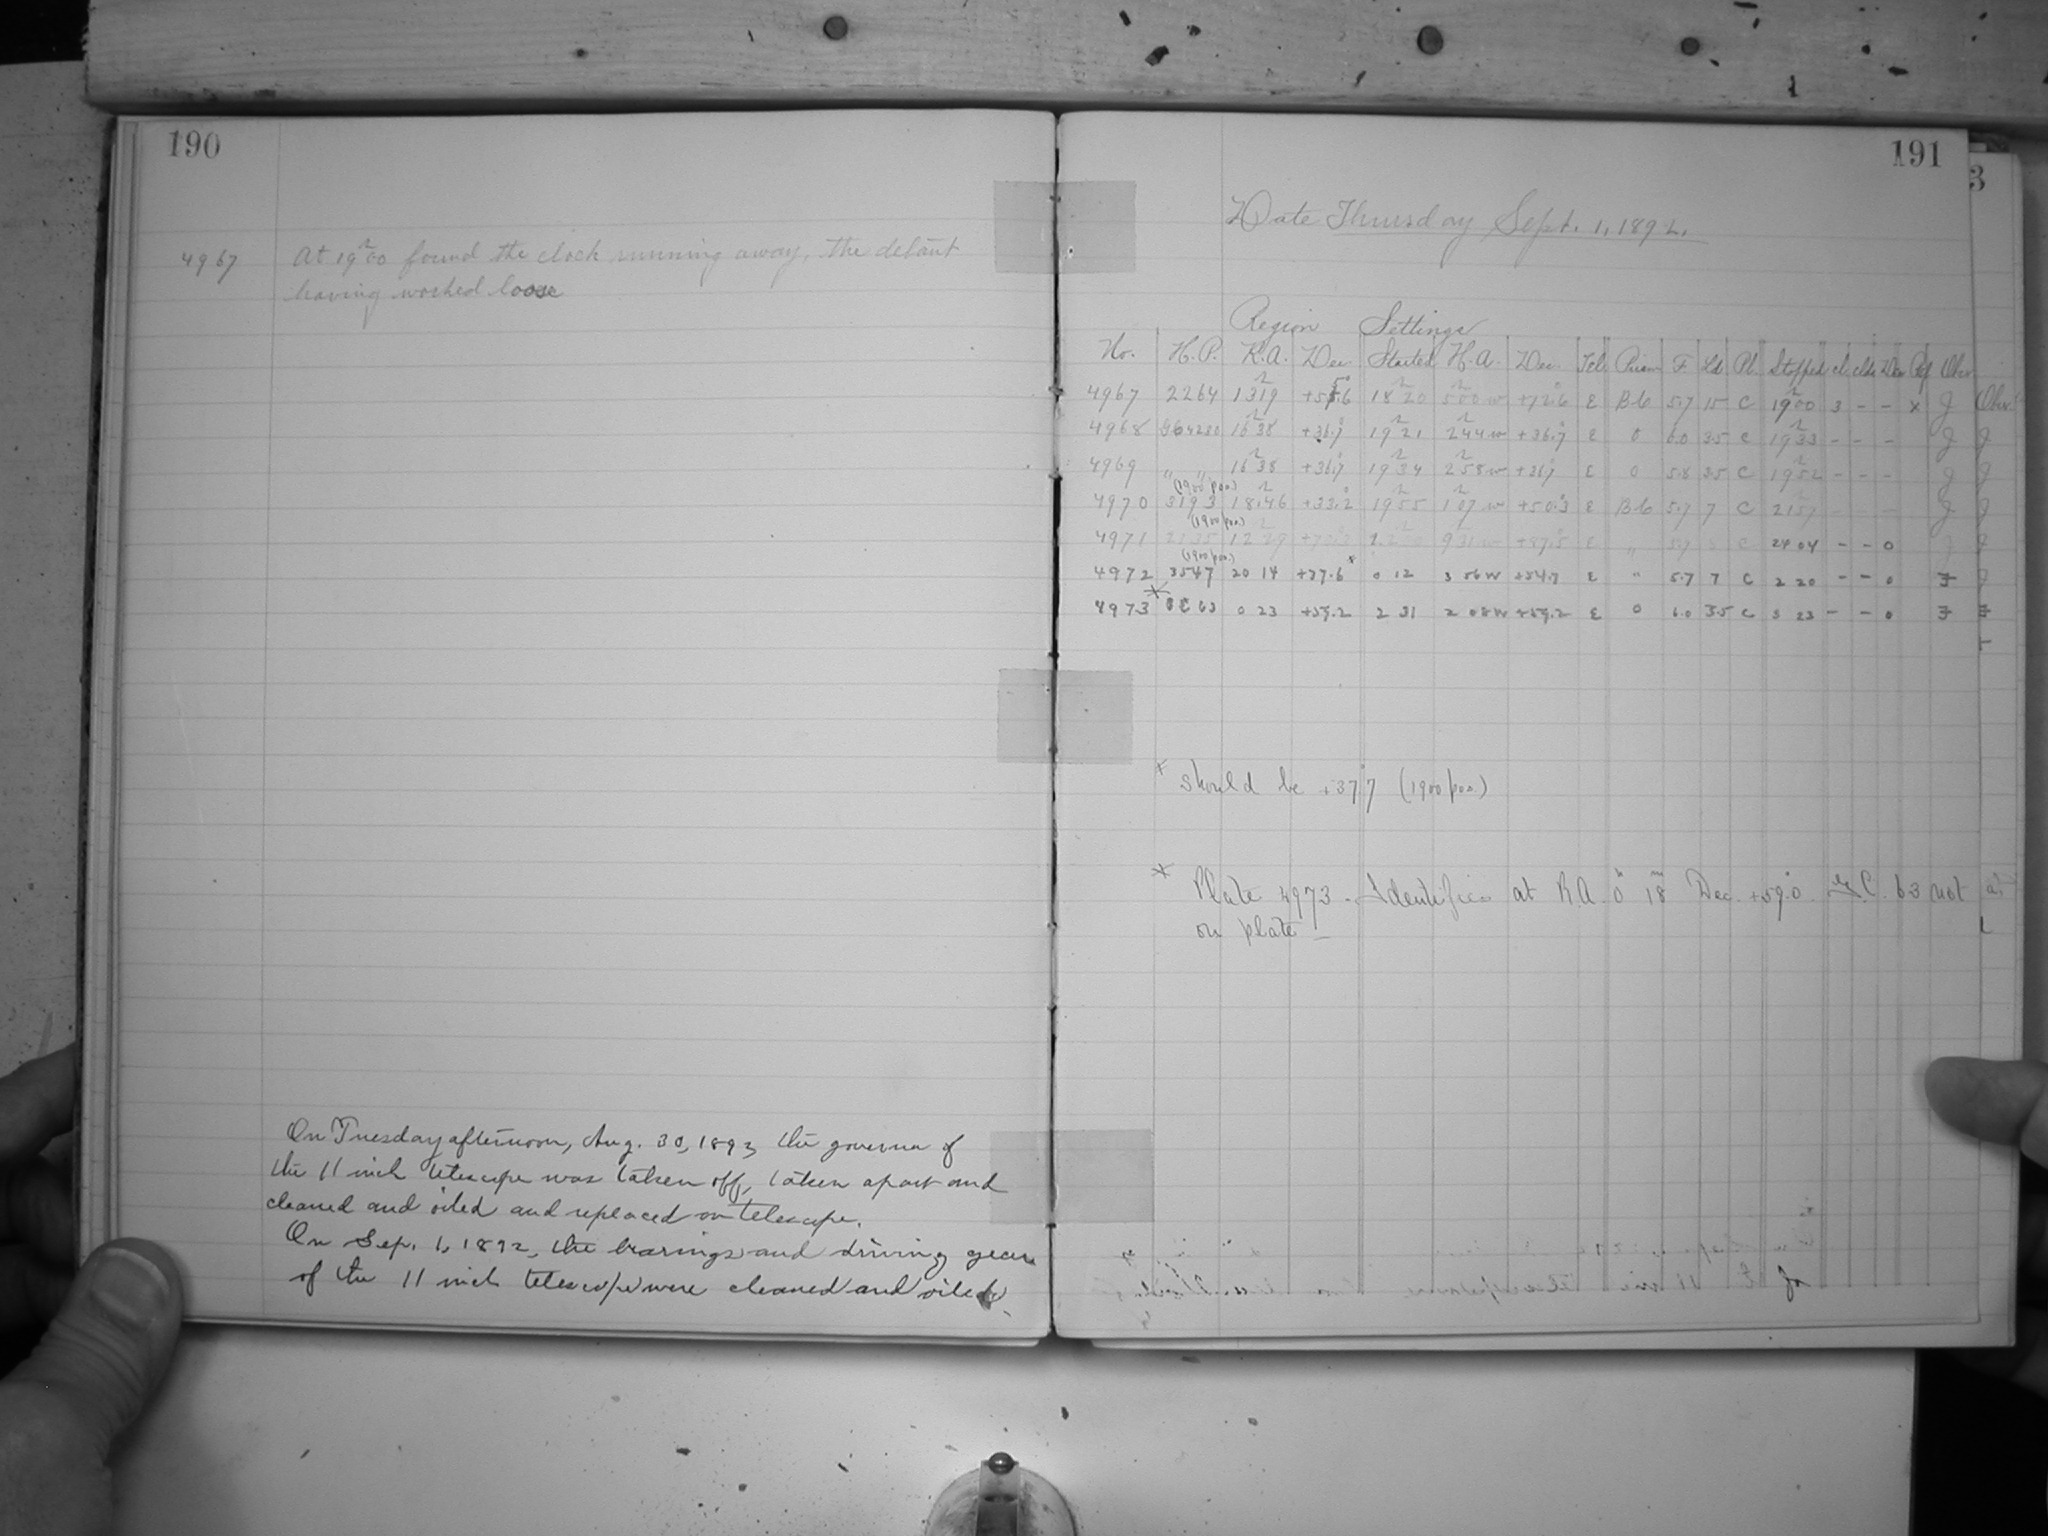 190
4967 At 19h00 found the clock running away, the detant
having worked loose
On Tuesday afternoon, Aug. 30, 1892, the governor of
the 11 inch telescope was taken off, taken apart and
cleaned and oiled and replaced on telescope.
On Sep. 1, 1892, the bearings and driving gears
of the 11 inch telescope were cleaned and oiled.
191
3
Date Thursday Sept. 1, 1892.
Region Settings
No. H.P. R.A. Dec. Started H.A. Dec. Tel. Prism F. Ld. Pl. Stopped cl. clds Dew Obsr
4967 2264 13 19 18 20 5 00 w +72.6 E B6 5.7 15 C 19 00 3 - - x J Obsr.
4968 16 38 +36.7 19 21 2 44 w +36.7 E 0 6.0 3.5 C 19 33 - - - J J
4969 " " 16 38 +36.7 19 34 2 58 w +36.7 E 0 5.8 3.5 C 19 52 - - - J J
(1900 pos.)
4970 3193 18 46 +33.2 19 55 1 07 w +50.3 E B6 5.7 7 C 21 57 - - - J J
(1900 pos.)
4971 12 29 9 31 w +87.5 E " 5.7 C 24 04 - - 0 J J
(1900 pos.)
4972 3547 20 14 +37.6* 0 12 3 56 w +54.7 E " 5.7 7 C 2 20 - - 0 J J
4973 * 0 23 +59.2 2 31 2 08 w +59.2 E 0 6.0 3.5 C 3 23 - - 0 J J
* should be +37.7 (1900 pos.)
* Plate 4973 - Identifies at R.A. 0h 18m Dec. +59.0 C. 63 not
on plate -